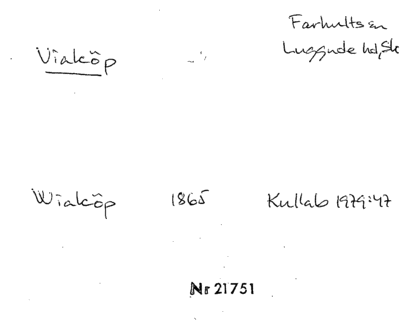 Farhults sn
Viaköp
Luggude hd, Sk
Wiaköp 1865 Kullab 1979:47
Nr 21751